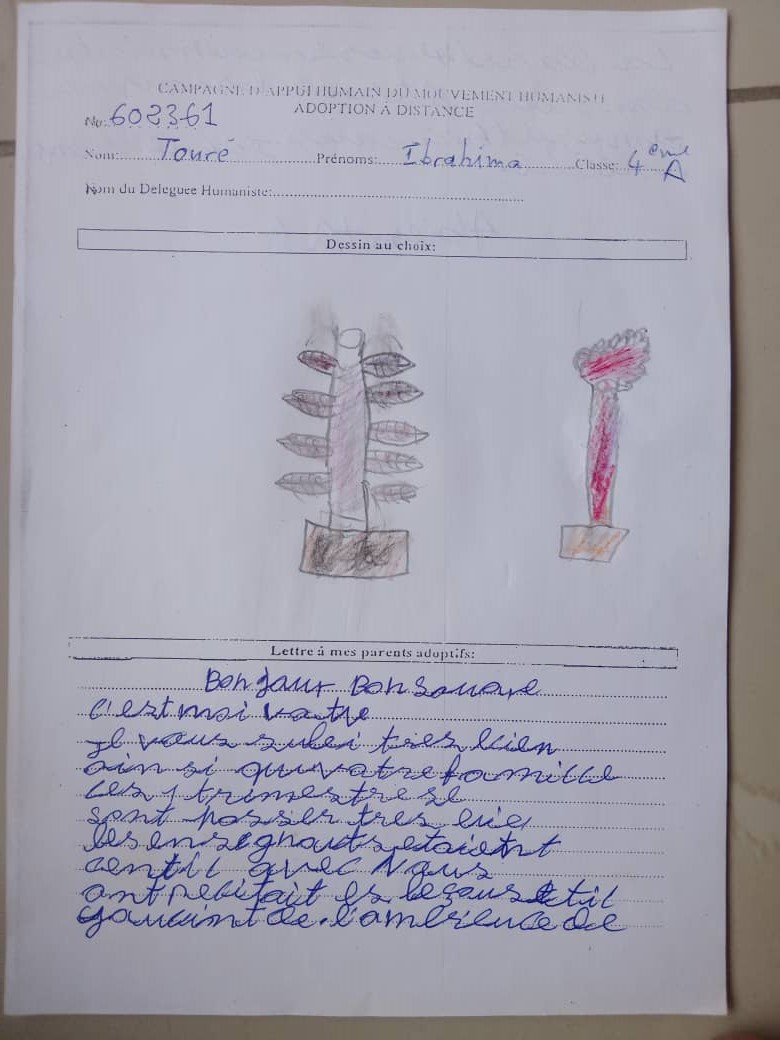 CAMPAGNE D'APPUI HUMAIN DU MOUVEMENT HUMANISTE
ADOPTION À DISTANCE
No: 602361
Nom: Touré Prénoms: Ibrahima Classe: 4ème A
Nom du Deleguee Humaniste:
Dessin au choix:
Lettre à mes parents adoptifs:
Bonjour Bonsouare
c'est moi votre
je vous sulei tres bien
ainsi quvotre famille
les 1 trimestre se
sont posser tres bie
les enseignants etaient
centil avec Nous
ont les leçous et il
de l'ambience de